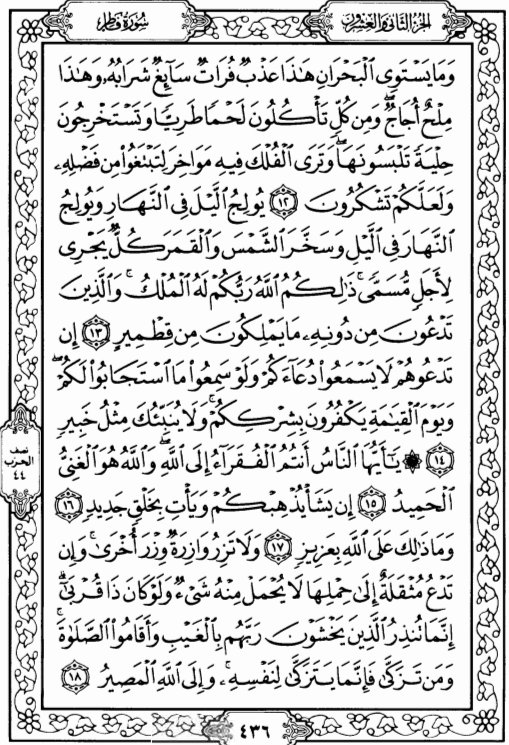 الجزء الثاني والعشرون
سورة فاطر
وَمَا يَسْتَوِي الْبَحْرَانِ هَٰذَا عَذْبٌ فُرَاتٌ سَائِغٌ شَرَابُهُ وَهَٰذَا
مِلْحٌ أُجَاجٌ ۖ وَمِن كُلٍّ تَأْكُلُونَ لَحْمًا طَرِيًّا وَتَسْتَخْرِجُونَ
حِلْيَةً تَلْبَسُونَهَا ۖ وَتَرَى الْفُلْكَ فِيهِ مَوَاخِرَ لِتَبْتَغُوا مِن فَضْلِهِ
وَلَعَلَّكُمْ تَشْكُرُونَ ١٢ يُولِجُ اللَّيْلَ فِي النَّهَارِ وَيُولِجُ
النَّهَارَ فِي اللَّيْلِ وَسَخَّرَ الشَّمْسَ وَالْقَمَرَ كُلٌّ يَجْرِي
لِأَجَلٍ مُّسَمًّى ۚ ذَٰلِكُمُ اللَّهُ رَبُّكُمْ لَهُ الْمُلْكُ ۚ وَالَّذِينَ
تَدْعُونَ مِن دُونِهِ مَا يَمْلِكُونَ مِن قِطْمِيرٍ ١٣ إِن
تَدْعُوهُمْ لَا يَسْمَعُوا دُعَاءَكُمْ وَلَوْ سَمِعُوا مَا اسْتَجَابُوا لَكُمْ ۖ
وَيَوْمَ الْقِيَٰمَةِ يَكْفُرُونَ بِشِرْكِكُمْ ۚ وَلَا يُنَبِّئُكَ مِثْلُ خَبِيرٍ
١٤ ۞ يَٰأَيُّهَا النَّاسُ أَنتُمُ الْفُقَرَاءُ إِلَى اللَّهِ ۖ وَاللَّهُ هُوَ الْغَنِيُّ
الْحَمِيدُ ١٥ إِن يَشَأْ يُذْهِبْكُمْ وَيَأْتِ بِخَلْقٍ جَدِيدٍ ١٦
وَمَا ذَٰلِكَ عَلَى اللَّهِ بِعَزِيزٍ ١٧ وَلَا تَزِرُ وَازِرَةٌ وِزْرَ أُخْرَىٰ ۚ وَإِن
تَدْعُ مُثْقَلَةٌ إِلَىٰ حِمْلِهَا لَا يُحْمَلْ مِنْهُ شَيْءٌ وَلَوْ كَانَ ذَا قُرْبَىٰ ۗ
إِنَّمَا تُنذِرُ الَّذِينَ يَخْشَوْنَ رَبَّهُم بِالْغَيْبِ وَأَقَامُوا الصَّلَوٰةَ ۚ
وَمَن تَزَكَّىٰ فَإِنَّمَا يَتَزَكَّىٰ لِنَفْسِهِ ۚ وَإِلَى اللَّهِ الْمَصِيرُ ١٨
نصف
الحزب
٤٤
٤٣٦